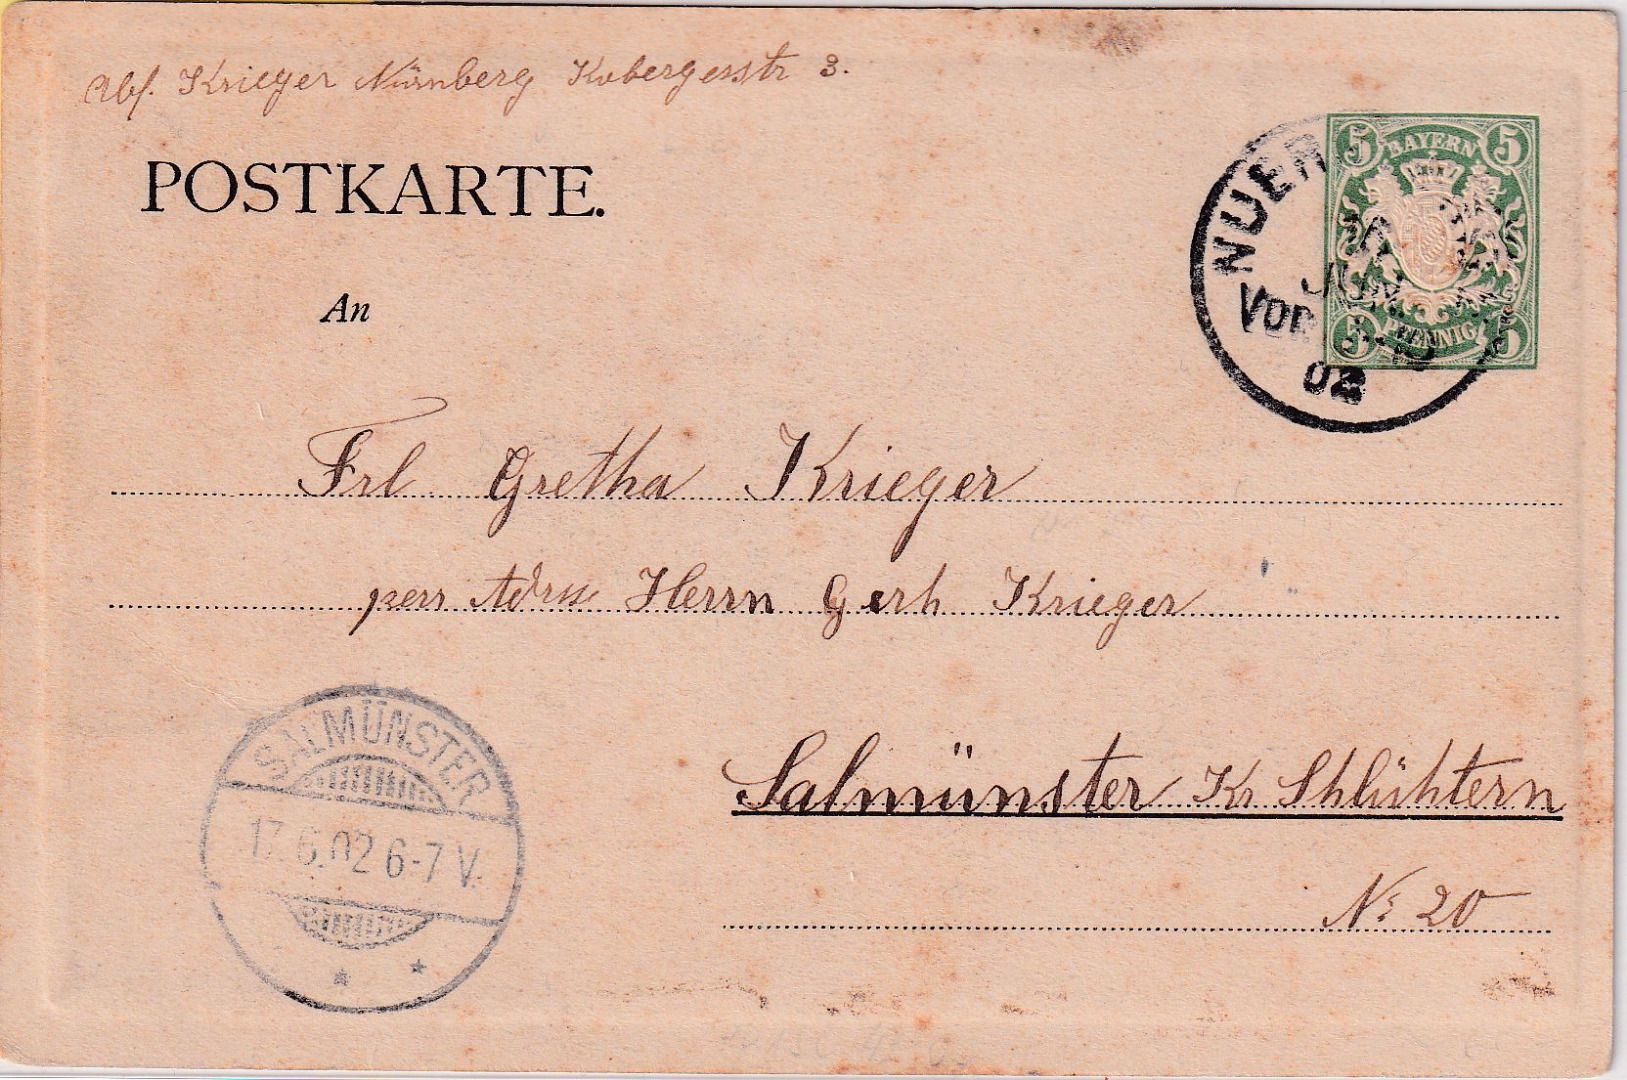 Abs. Krieger Nürnberg Kobergerstr 3.
POSTKARTE.
BAYERN
5 5
5 PFENNIG 5
NUER
VOR
02
An
Frl Gretha Krieger
perr Adrss Herrn Gerh Krieger
Salmünster Kr Shlühtern
No 20
SALMÜNSTER
17.6.02 6-7 V.